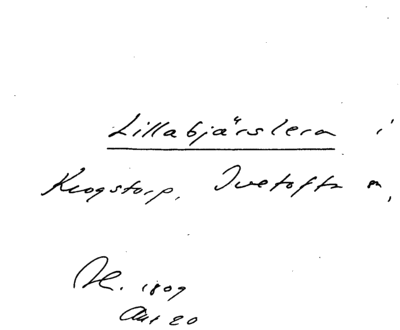 Lillabjärslera i
Krogstorp, Ivetofta sn,
H. 1809
Akt 20